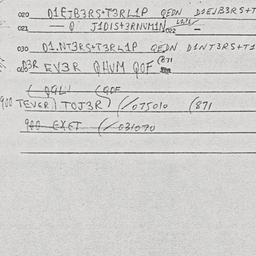 020 D1EJB3RS+T3RL1P QEDN D1EJB3RS+T
021 — Q J1D1S+3RNUM1N
030 D1.NT3RS+T3RL1P QEDN D1NT3RS+T1
EV3R QHUM QOF (871
( QGL) (QOF
900 TEVGR) TOJ3R) (/075010 (871
900 EXET (/031070